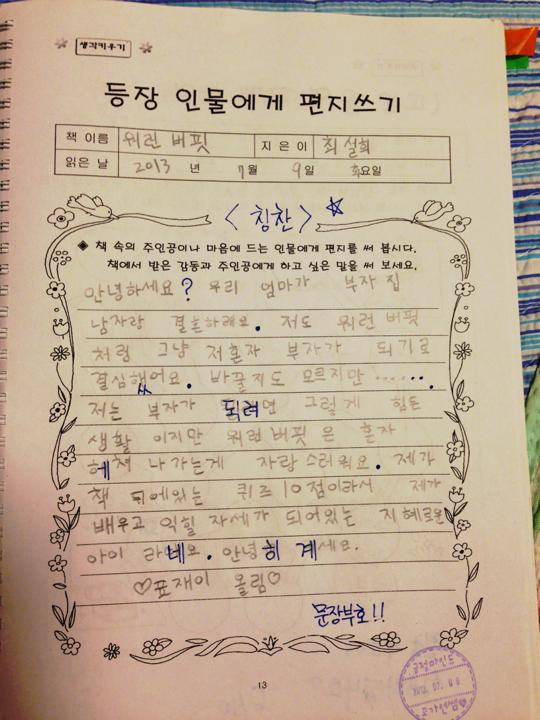 생각키우기
등장 인물에게 편지쓰기
책 이름 워런 버핏 지은이 최설희
읽은 날 2013 년 7월 9일 화요일
<칭찬>
◈ 책 속의 주인공이나 마음에 드는 인물에게 편지를 써 봅시다.
책에서 받은 감동과 주인공에게 하고 싶은 말을 써 보세요.
안녕하세요? 우리 엄마가 부자 집
남자랑 결혼하래요. 저도 워런 버핏
처럼 그냥 저혼자 부자가 되기로
결심했어요. 바꿀지도 모르지만.......
저는 부자가 되려면 그렇게 힘든
생활 이지만 워런버핏은 혼자
헤쳐 나가는게 자랑스러워요. 제가
책 뒤에있는 퀴즈 10점이라서 제가
배우고 익힐 자세가 되어있는 지혜로운
아이 라네요. 안녕히 계세요.
♡표재이 올림♡
문장부호!!
13
긍정마인드